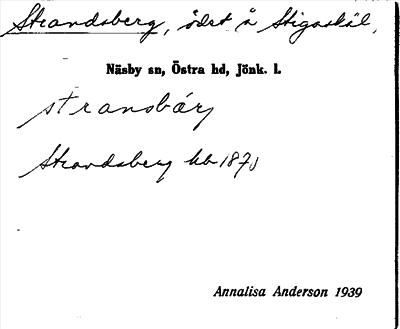 Strandsberg, ödet å Stigaskäl,
Näsby sn, Östra hd, Jönk. l.
stransbárj
Strandsberg hb 1871
Annalisa Anderson 1939